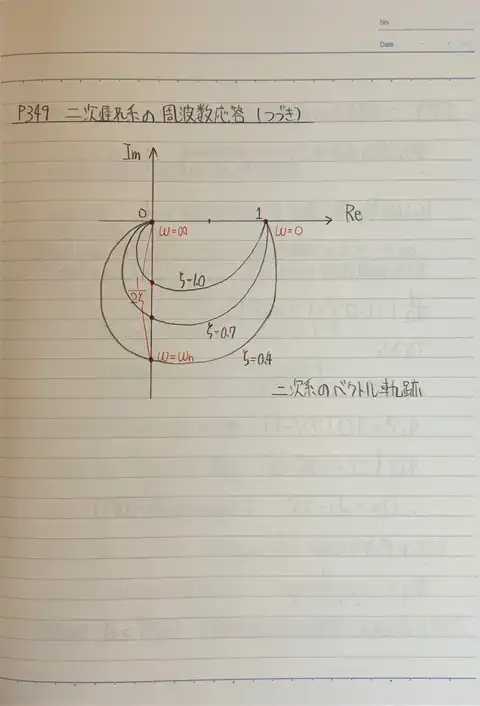 No.
Date
P349 二次遅れ系の周波数応答(つづき)
Im
0
1
Re
ω=∞
ω=0
ζ=1.0
1/2ζ
ζ=0.7
ω=ωn
ζ=0.4
二次系のベクトル軌跡